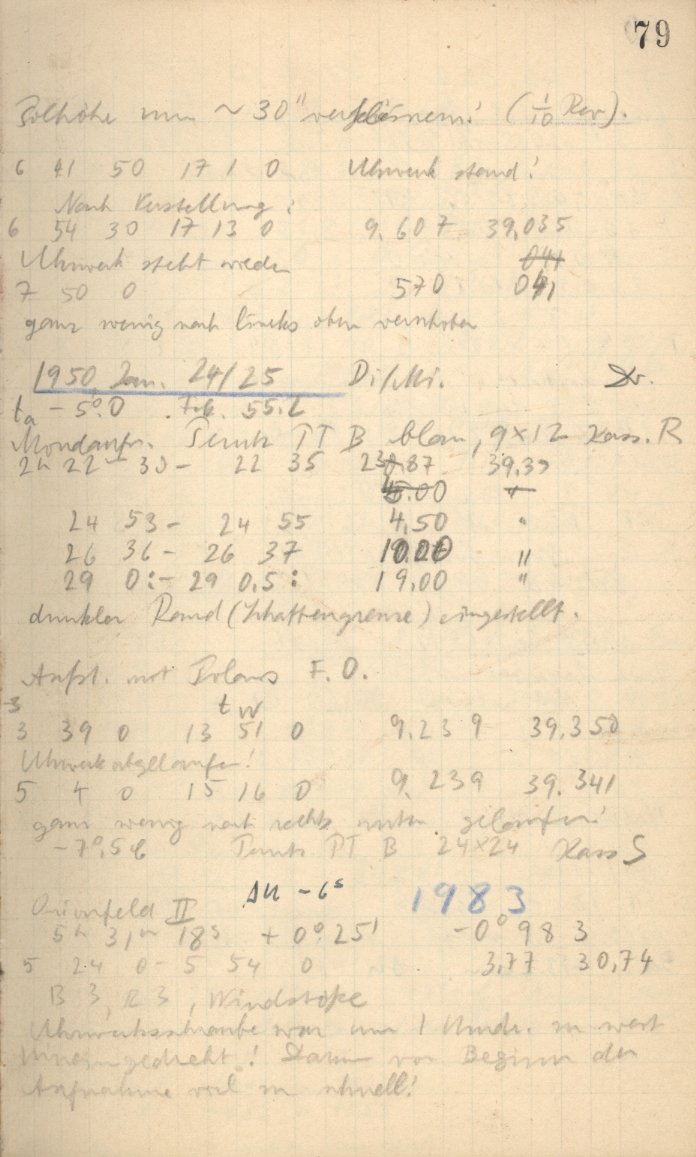 79
Polhöhe um ~ 30" verkleinern! (1/10 Rev).
6 41 50 17 1 0 Uhrwerk stand!
Nach Verstellung:
6 54 30 17 13 0 9.607 39.035
Uhrwerk steht wieder
7 50 0 570 041
ganz wenig nach links oben verschoben
1950 Jan. 24/25 Di/Mi.
ta -5°.0 55.2
Mondaufn. Perutz PT B blau, 9×12 Kass. R
2h 22 30 - 22 35 39.39
24 53 - 24 55 4.50 "
26 36 - 26 37 10.00 "
29 0: - 29 0.5: 19.00 "
dunkler Rand (Schattengrenze) eingestellt.
Aufst. mit Polaris F.O.
t w
3 39 0 13 51 0 9.239 39.350
Uhrwerk abgelaufen!
5 4 0 15 16 0 9.239 39.341
ganz wenig nach rechts unten gelaufen!
-7°,5 Perutz PT B 24×24 Kass S
Orionfeld II ΔU -6s 1983
5h 31m 18s + 0° 25' -0° 983
5 24 0 - 5 54 0 3,77 30,74
B 3, R 3, Windstöße
Uhrwerksschraube war um 1 Umdr. zu weit
hineingedreht! Darum vor Beginn der
Aufnahme viel zu schnell!